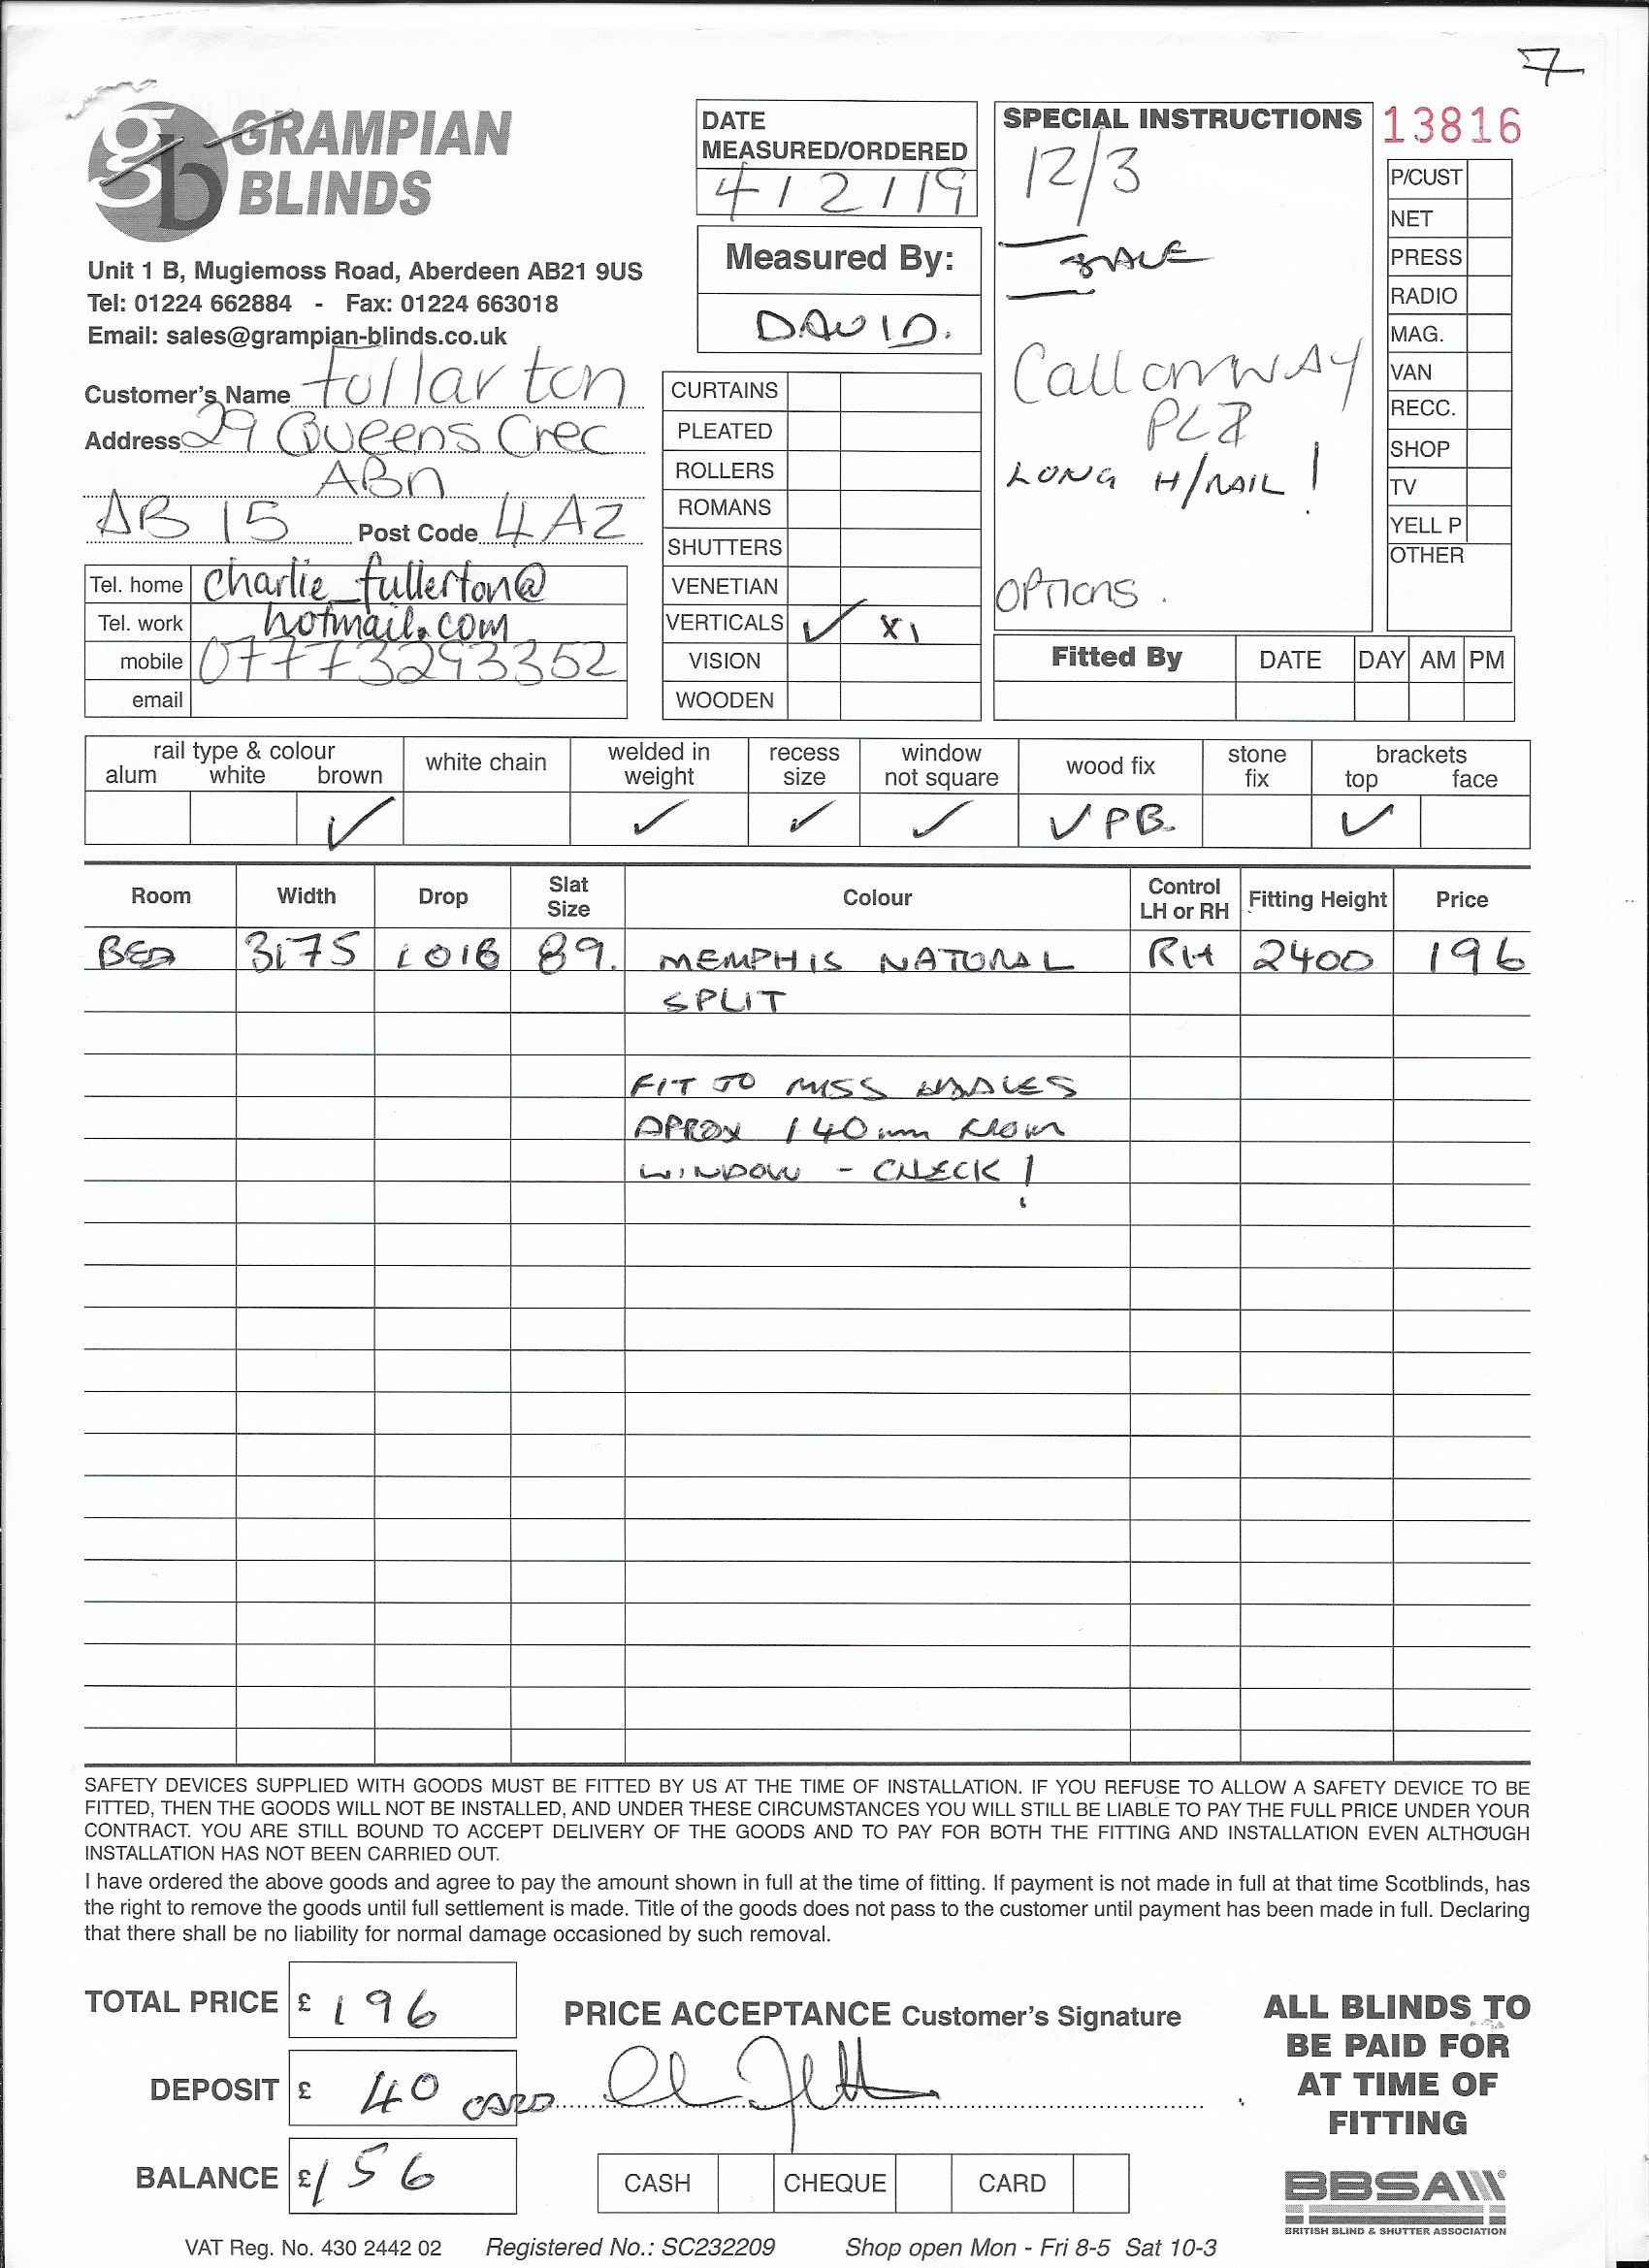 7
GRAMPIAN
BLINDS
Unit 1 B, Mugiemoss Road, Aberdeen AB21 9US
Tel: 01224 662884 - Fax: 01224 663018
Email: sales@grampian-blinds.co.uk
Customer's Name Fullarton
Address 29 Queens Crec
ABn
AB 15 Post Code 4AZ
Tel. home charlie_fullerton@
Tel. work hotmail.com
mobile 07773293352
email
DATE
MEASURED/ORDERED
4/2/19
Measured By:
DAVID.
CURTAINS
PLEATED
ROLLERS
ROMANS
SHUTTERS
VENETIAN
VERTICALS ✓ X1
VISION
WOODEN
SPECIAL INSTRUCTIONS
12/3
Call on way
PLZ
LONG H/RAIL !
OPTIONS.
13816
P/CUST
NET
PRESS
RADIO
MAG.
VAN
RECC.
SHOP
TV
YELL P
OTHER
Fitted By DATE DAY AM PM
rail type & colour white chain welded in recess window wood fix stone brackets
alum white brown weight size not square fix top face
✓ ✓ ✓ ✓ ✓ PB. ✓
Room Width Drop Slat Size Colour Control LH or RH Fitting Height Price
BED 3175 1018 89. MEMPHIS NATURAL RH 2400 196
SPLIT
FIT TO MISS HANDLES
APROX 140mm FROM
WINDOW - CHECK !
SAFETY DEVICES SUPPLIED WITH GOODS MUST BE FITTED BY US AT THE TIME OF INSTALLATION. IF YOU REFUSE TO ALLOW A SAFETY DEVICE TO BE
FITTED, THEN THE GOODS WILL NOT BE INSTALLED, AND UNDER THESE CIRCUMSTANCES YOU WILL STILL BE LIABLE TO PAY THE FULL PRICE UNDER YOUR
CONTRACT. YOU ARE STILL BOUND TO ACCEPT DELIVERY OF THE GOODS AND TO PAY FOR BOTH THE FITTING AND INSTALLATION EVEN ALTHOUGH
INSTALLATION HAS NOT BEEN CARRIED OUT.
I have ordered the above goods and agree to pay the amount shown in full at the time of fitting. If payment is not made in full at that time Scotblinds, has
the right to remove the goods until full settlement is made. Title of the goods does not pass to the customer until payment has been made in full. Declaring
that there shall be no liability for normal damage occasioned by such removal.
TOTAL PRICE £ 196
DEPOSIT £ 40 CARD
BALANCE £156
PRICE ACCEPTANCE Customer's Signature
CASH CHEQUE CARD
ALL BLINDS TO
BE PAID FOR
AT TIME OF
FITTING
BBSA
BRITISH BLIND & SHUTTER ASSOCIATION
VAT Reg. No. 430 2442 02 Registered No.: SC232209 Shop open Mon - Fri 8-5 Sat 10-3